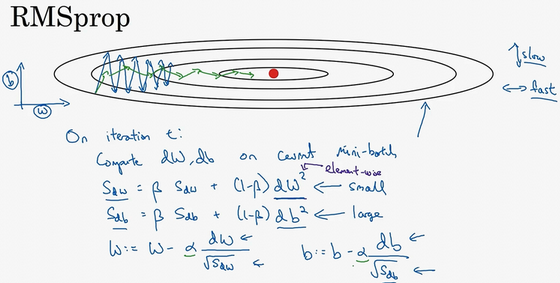 RMSprop
↕ slow
↔ fast
b
w
On iteration t:
Compute dW, db on current mini-batch
element-wise
S_dw = β S_dw + (1-β) dW² ← small
S_db = β S_db + (1-β) db² ← large
W := W - α dW / √S_dw ← b := b - α db / √S_db ←